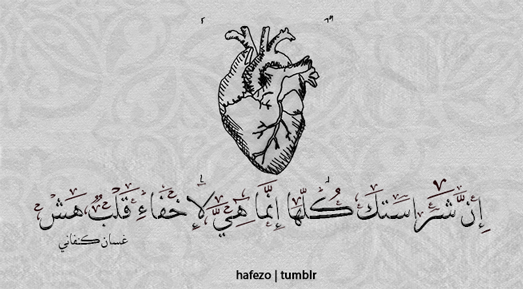 إِنَّ شَرَاسَتكَ كُلّهَا إِنَّمَا هِيَّ لإِخفَاءِ قَلبٌ هَشْ
غسان كنفاني
hafezo | tumblr